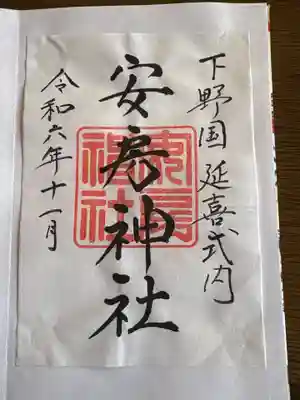 下野国延喜式内
安房神社
令和六年十一月